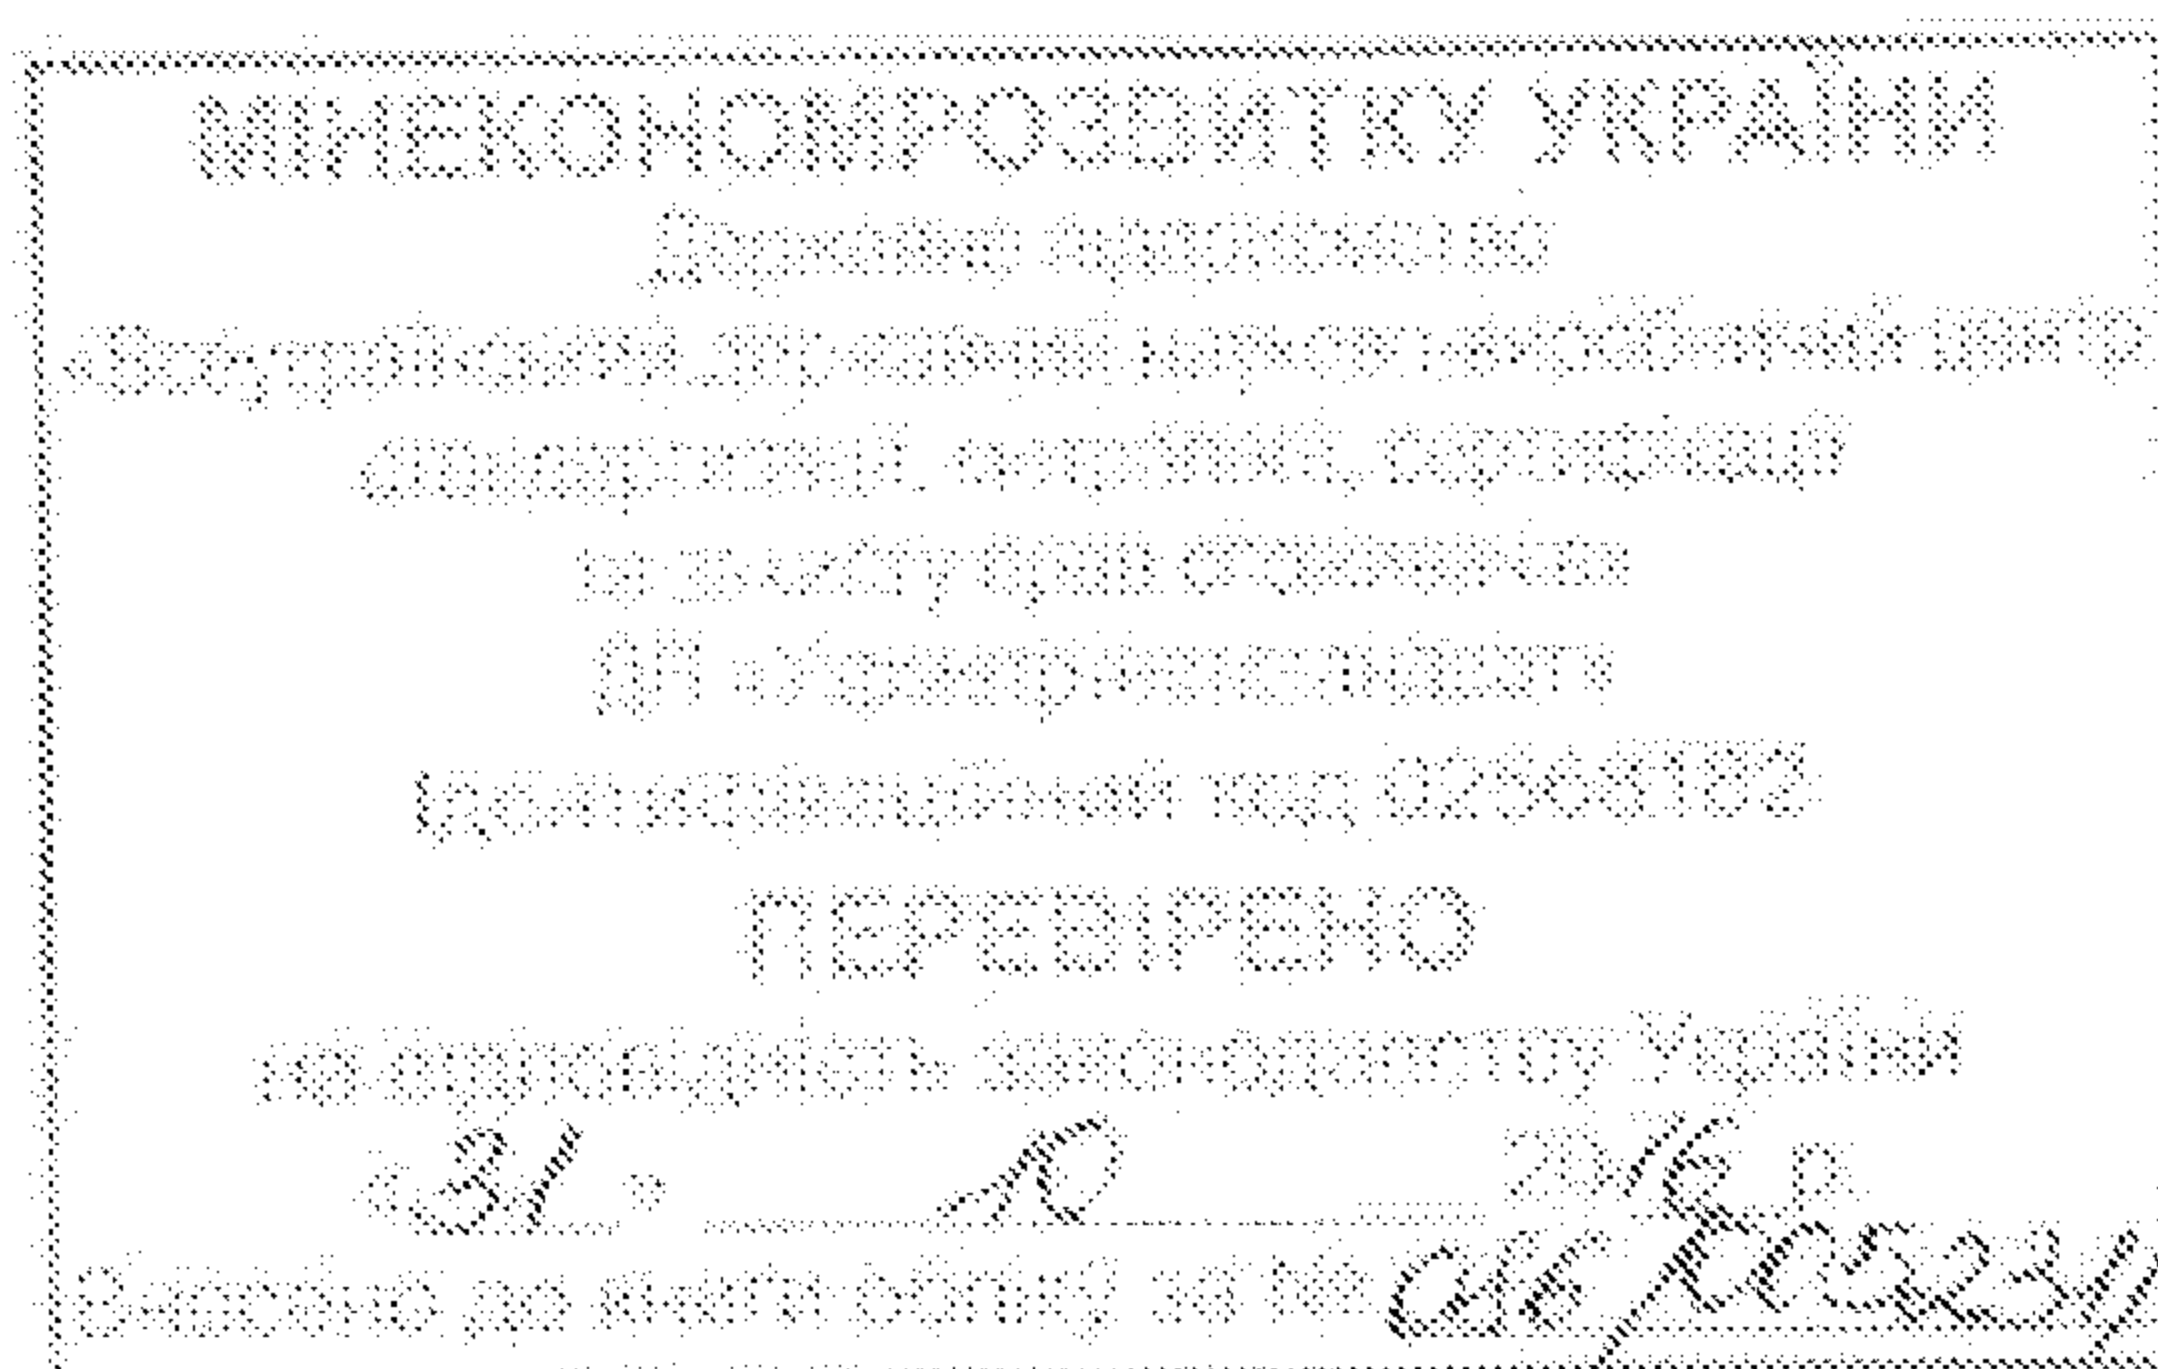 МІНЕКОНОМРОЗВИТКУ УКРАЇНИ
Державне підприємство
«Всеукраїнський державний науково-виробничий центр
стандартизації, метрології, сертифікації
та захисту прав споживачів»
ДП «Укрметртестстандарт»
Ідентифікаційний код 02568182
ПЕРЕВІРЕНО
на відповідність законодавству України
«31» 10 2016 р.
Внесено до книги обліку за №